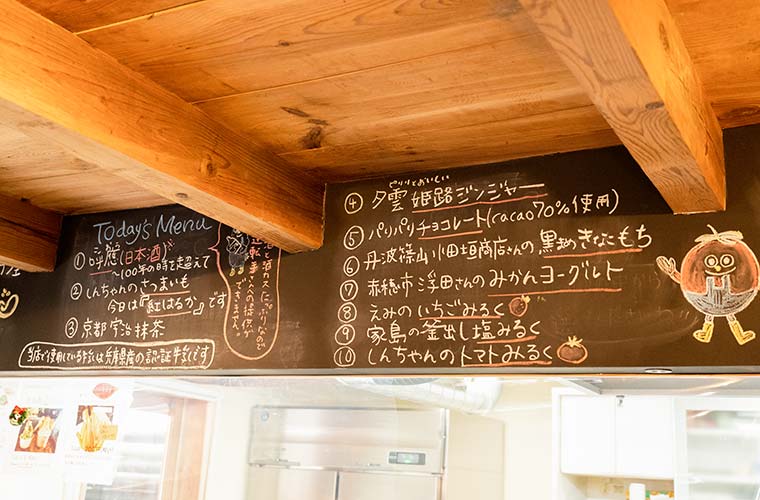 Today's Menu
① 呼應(日本酒)
〜100年の時を超えて
② しんちゃんのさつまいも
今日は『紅はるか』です
③ 京都宇治抹茶
当店で使用している牛乳は兵庫県産の認証牛乳です
ピリリとおいしい
④ 夕雲 姫路ジンジャー
⑤ パリパリチョコレート(cacao70%使用)
⑥ 丹波篠山 小田垣商店さんの黒豆きなこもち
⑦ 赤穂市 浮田さんのみかんヨーグルト
⑧ えみのいちごみるく
⑨ 家島の釜出し塩みるく
⑩ しんちゃんのトマトみるく